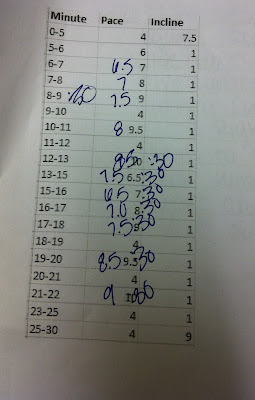 Minute Pace Incline
0-5 4 7.5
5-6 6 1
6-7 6.5 7 1
7-8 7 8 1
8-9 :30 7.5 9 1
9-10 4 1
10-11 8 9.5 1
11-12 4 1
12-13 8.5 10 :30 1
13-15 7.5 6.5 :30 1
15-16 6.5 7 :30 1
16-17 7.0 8 :30 1
17-18 7.5 :30 1
18-19 4 1
19-20 8.5 9.5 :30 1
20-21 4 1
21-22 9 10 :30 1
23-25 4 1
25-30 4 9